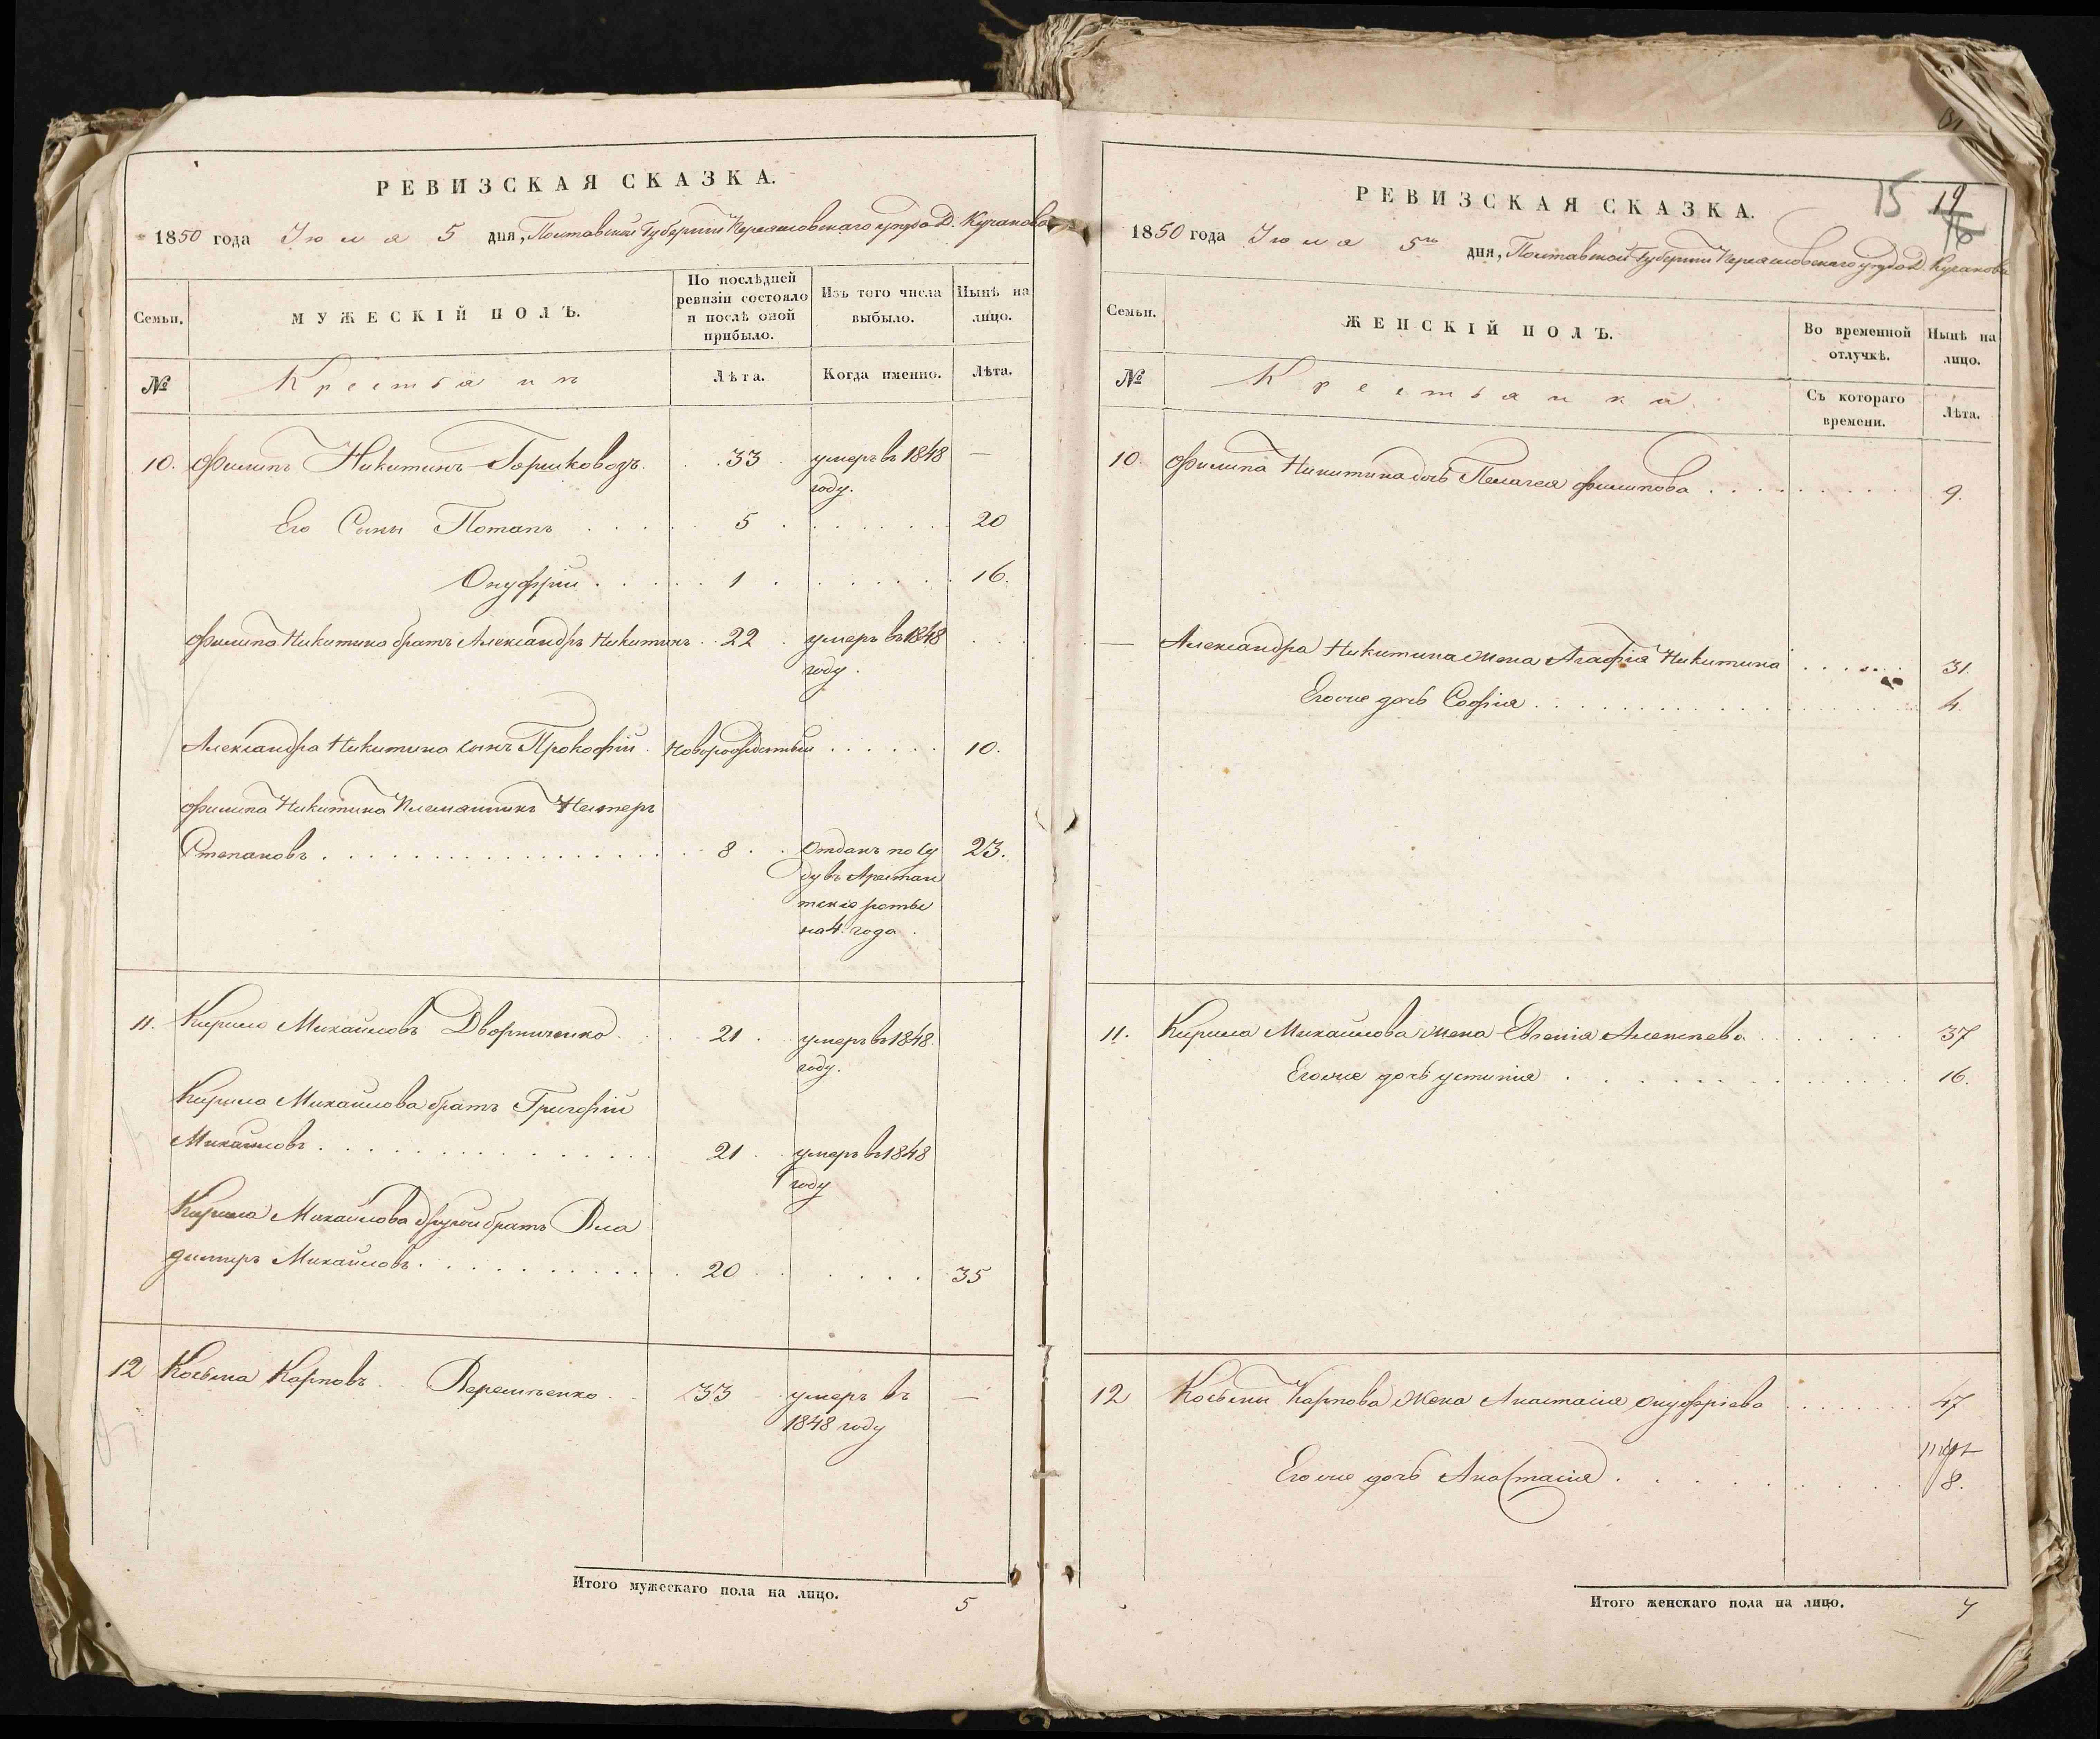 РЕВИЗСКАЯ СКАЗКА.
1850 года Июля 5 дня, Полтавской Губерніи Переяславского уезда Д. Кучакова
Семьи.
МУЖЕСКІЙ ПОЛЪ.
По послѣдней ревизіи состояло и послѣ оной прибыло.
Изъ того числа выбыло.
Нынѣ на лицо.
№
Крестьянъ
Лѣта.
Когда именно.
Лѣта.
10. Филипъ Никитинъ Горшковозъ. 33 умеръ въ 1848 —
году.
Его Сыны Потапъ 5 20
Онуфрій 1 16.
Филипа Никитина братъ Александръ Никитинъ 22 умеръ въ 1848
году.
Александра Никитина сынъ Прокофій Новорожденный 10.
Филипа Никитина Племянникъ Нестеръ
Степановъ 8 Отданъ по су 23.
ду въ Арестан
тскіе роты
на 4. года
11. Кирило Михайловъ Дворниченко 21 умеръ въ 1848
году.
Кирила Михайлова братъ Григорій
Михайловъ 21 умеръ въ 1848
году
Кирила Михайлова другой братъ Вла
димиръ Михайловъ 20 35
12 Косьма Карповъ 33 умеръ въ —
1848 году
Итого мужескаго пола на лицо. 5
15 19
РЕВИЗСКАЯ СКАЗКА.
1850 года Июля 5го дня, Полтавской Губерніи Переяславского уезда Д. Кучакова
Семьи.
ЖЕНСКІЙ ПОЛЪ.
Во временной отлучкѣ.
Нынѣ на лицо.
№
Крестьянка
Съ котораго времени.
Лѣта.
10. Филипа Никитина дочь Пелагея Филипова 9.
— Александра Никитина жена Агафія Никитина 31.
Его же дочь Софія 4.
11. Кирила Михайлова жена Евгенія Алексѣева 37
Его же дочь Устинія 16.
12 Косьмы Карпова Жена Анастасія Онуфріева 47
Его же дочь Анастасія 8.
Итого женскаго пола на лицо. 7